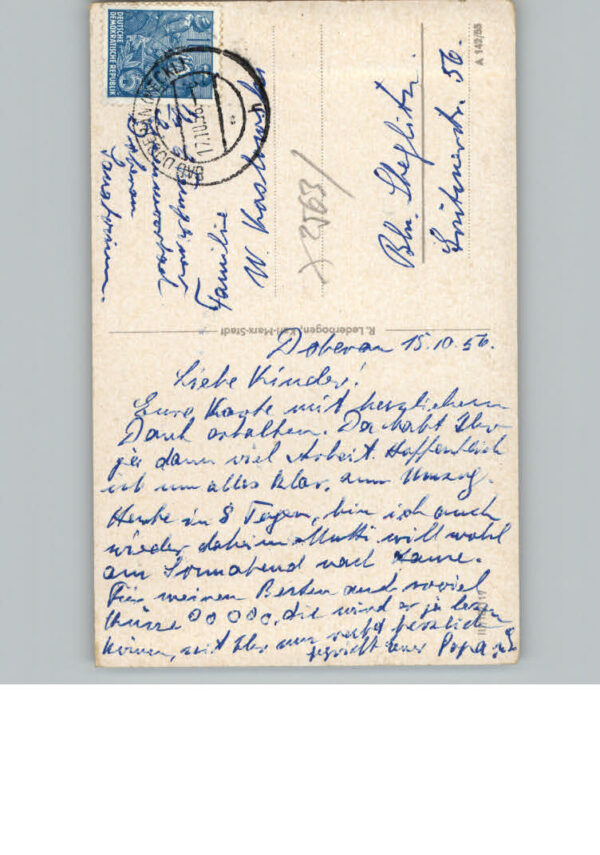 Doberan 15.10.56.
Liebe Kinder!
Eure Karte mit herzlichem
Dank erhalten. Da habt Ihr
ja dann viel Arbeit. Hoffentlich
ist nun alles klar, zum Umzug.
Heute in 8 Tagen, bin ich auch
wieder daheim. Mutti will wohl
am Sonnabend nach Hause.
Für meinen Besten auch soviel
Küsse OO OOO, die wird er ja lesen
können, seit Ihr nur recht herzlich
gegrüßt euer Papa
Familie
W.
Bln. Steglitz.
56.
Doberan
Sanatorium.
DEUTSCHE
DEMOKRATISCHE REPUBLIK
BAD DOBERAN
17.10.56
R. Lederbogen, Karl-Marx-Stadt
A 142/55
X 2563/